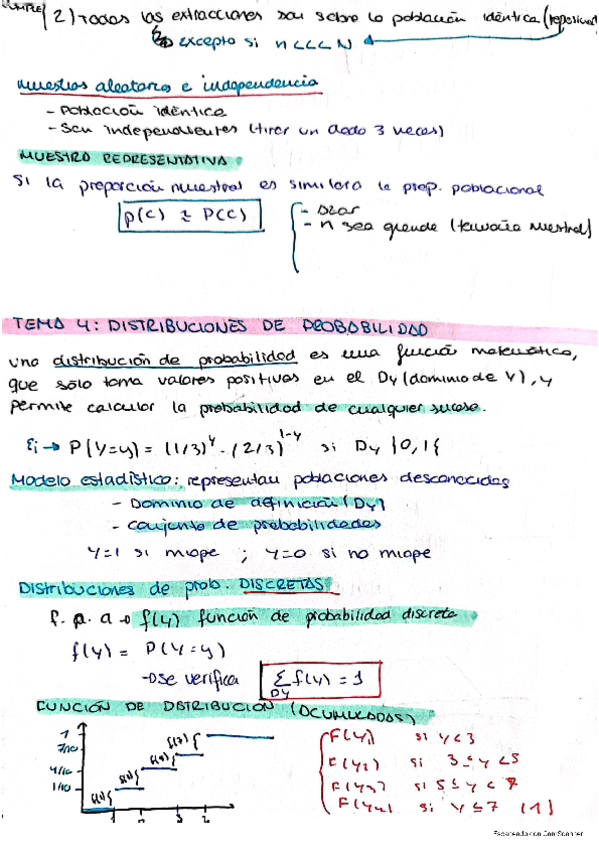 2) Todas las extracciones son sobre la población idéntica (reposición)
Excepto si n <<< N
muestras aleatorias e independencia
- Población idéntica
- Sean independientes (tirar un dado 3 veces)
MUESTRA REPRESENTATIVA
Si la proporción muestral es similar a la prop. poblacional
p(C) ≈ P(C)
- azar
- n sea grande (tamaño muestral)
TEMA 4: DISTRIBUCIONES DE PROBABILIDAD
una distribución de probabilidad es una función matemática,
que solo toma valores positivos en el Dy (dominio de Y), y
permite calcular la probabilidad de cualquier suceso.
Ej → P(Y=y) = (1/3)^y · (2/3)^1-y si Dy {0,1}
Modelo estadístico: representan poblaciones desconocidas
- Dominio de definición (Dy)
- conjunto de probabilidades
Y=1 si miope ; Y=0 si no miope
Distribuciones de prob. DISCRETAS
f. p. a → f(y) función de probabilidad discreta
f(y) = P(Y=y)
→ se verifica Σ f(y) = 1
Dy
FUNCIÓN DE DISTRIBUCIÓN (ACUMULADAS)
1
7/10
4/10
1/10
F(y1) si y<3
F(y2) si 3 ≤ y < 5
F(y3) si 5 ≤ y < 7
F(y4) si y ≤ 7 (1)
Escaneado con CamScanner